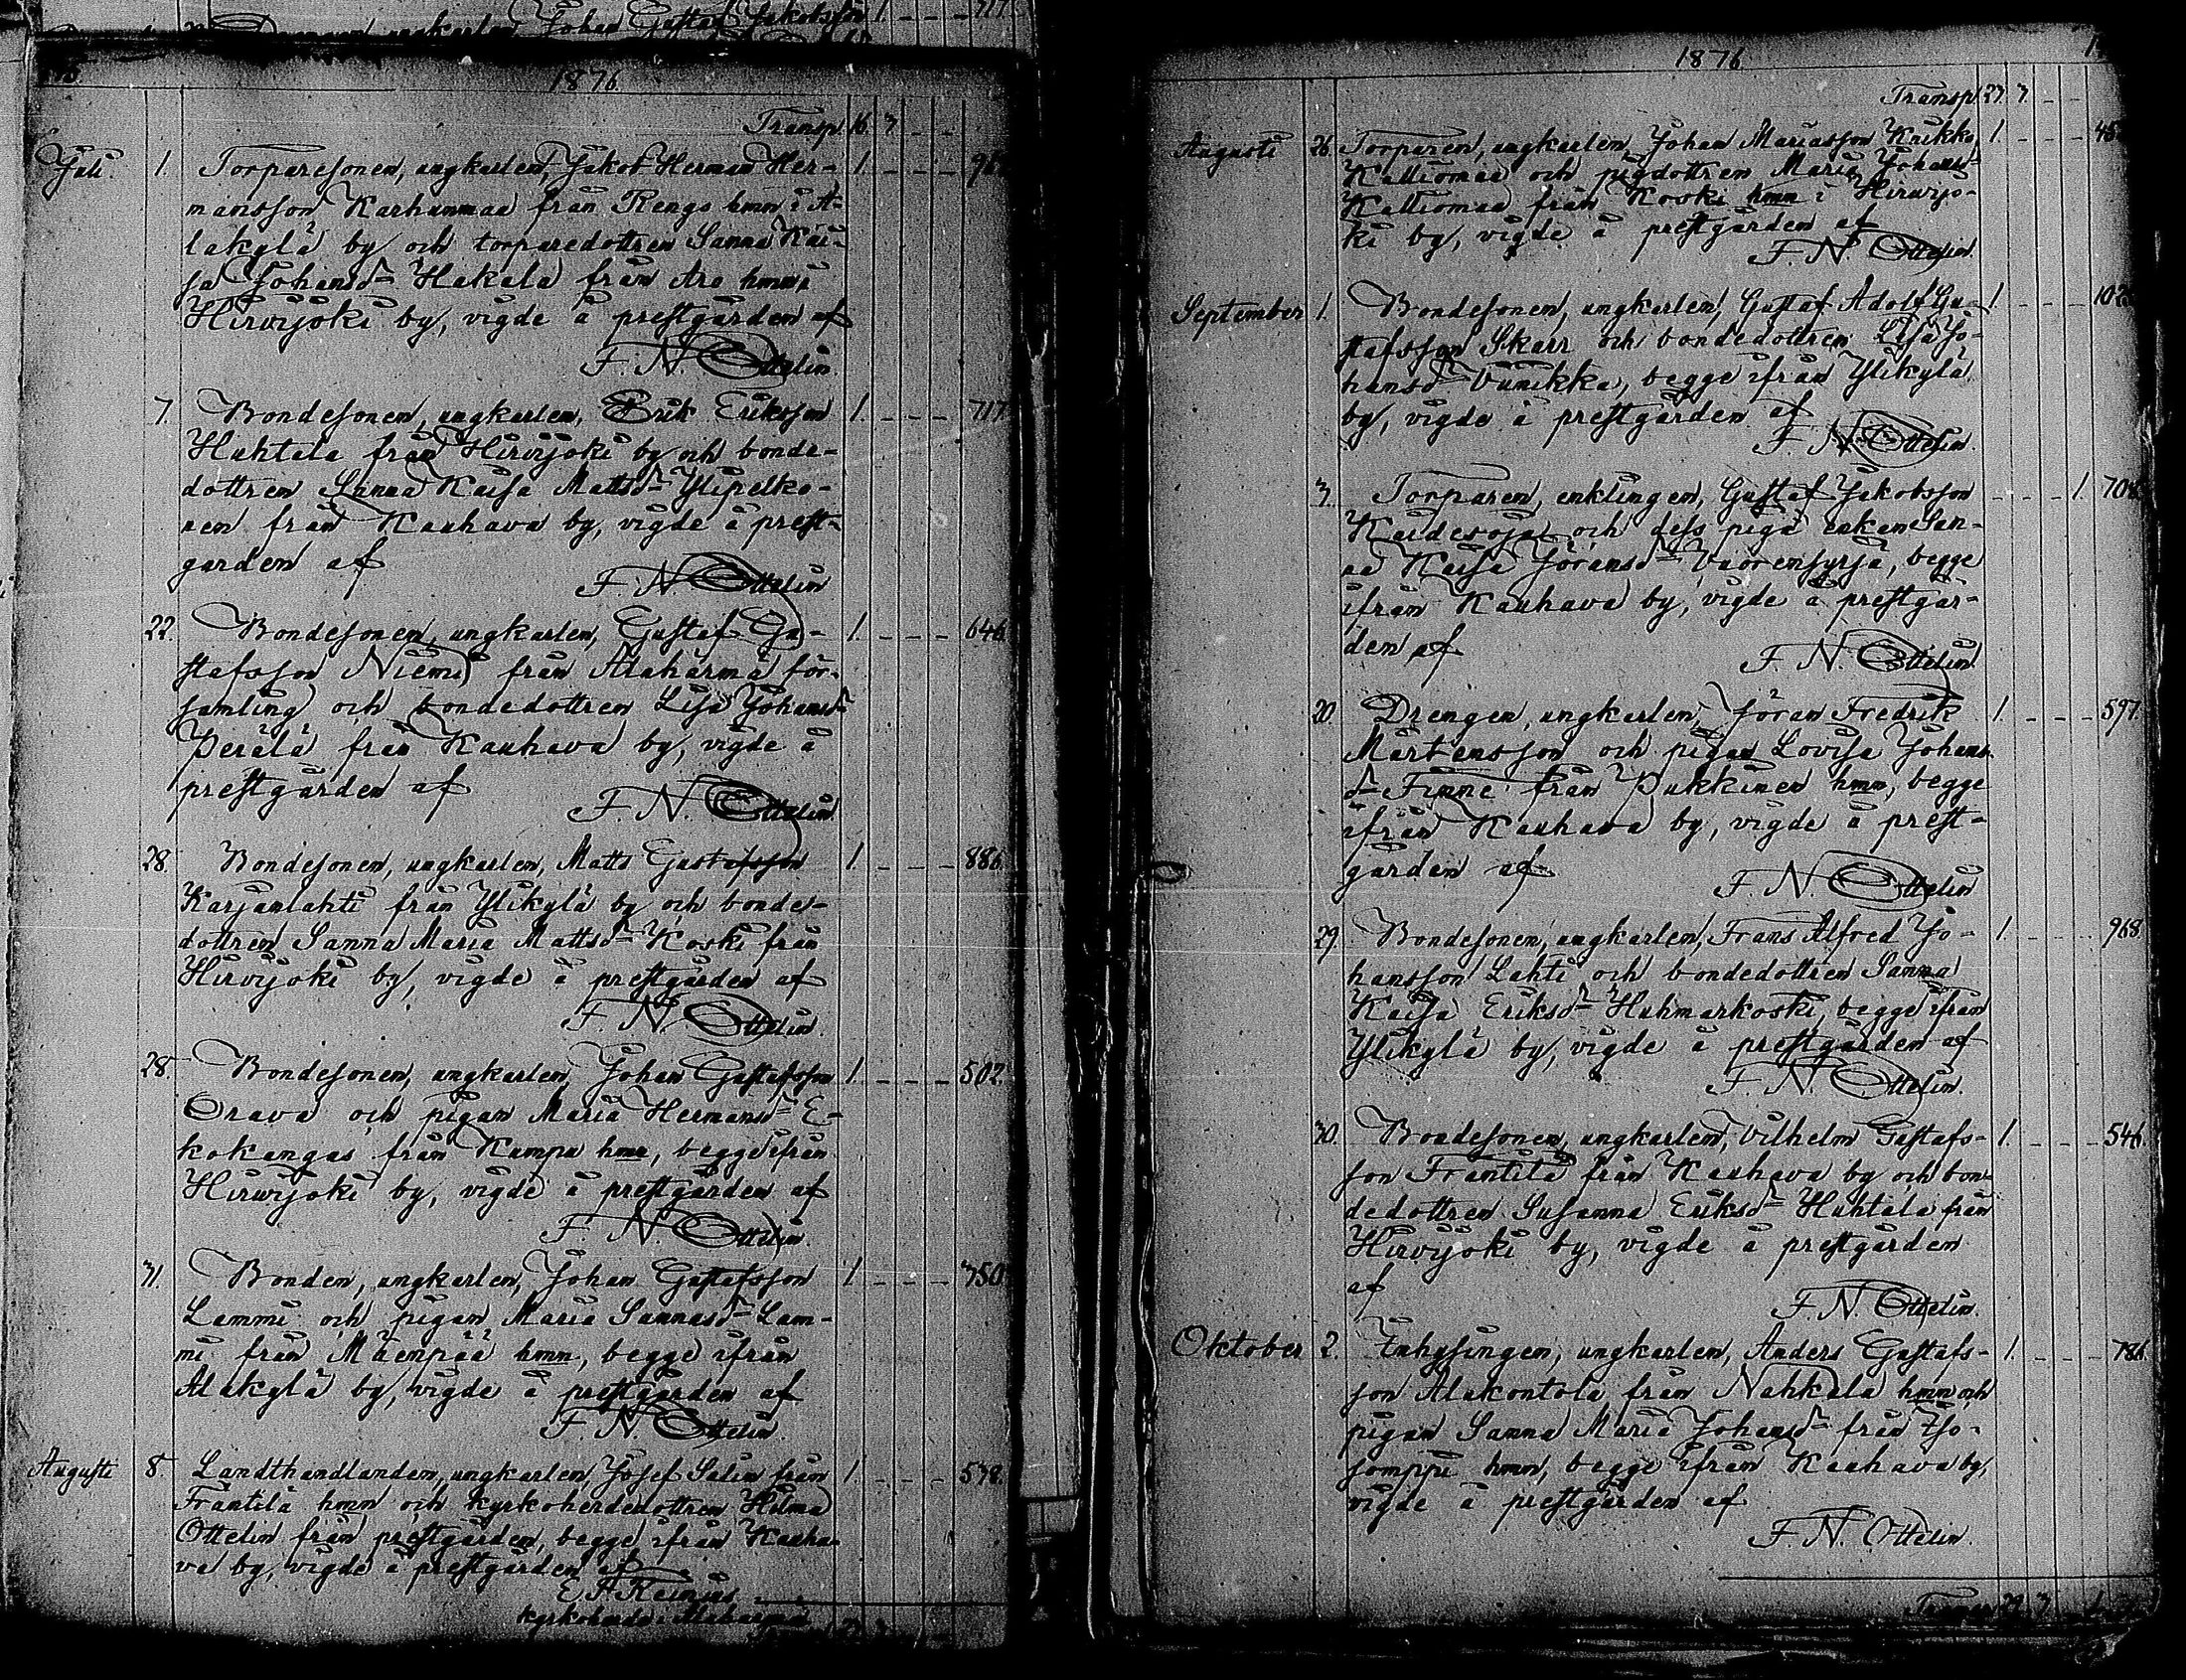 Johan Gustaf Jakobsson 1. - - - 717.
1876.
Transp. 16. 3 - -
Juli. 1. Torparesonen, ungkarlen, Jakob Herman Her- 1. - - -
mansson Karhunmaa från Rengo hmn i A-
lakylä by och torparedottren Sanna Kai-
sa Johansd:r Hakala från Aro hmn i
Hirvijoki by, vigde å prestgården af
F. N. Ottelin
7. Bondesonen, ungkarlen, Erik Eriksson 1. - - - 717.
Huhtala från Hirvijoki by och bonde-
dottren Sanna Kaisa Mattsd:r Ylipelko-
nen från Kauhava by, vigde å prest-
garden af
F. N. Ottelin
22. Bondesonen, ungkarlen, Gustaf Gu- 1. - - - 646.
stafsson Niemi från Alahärmä för-
samling och bondedottren Lisa Johansd:r
Perälä från Kauhava by, vigde å
prestgården af
F. N. Ottelin
28. Bondesonen, ungkarlen, Matts Gustafsson 1. - - - 886.
Karjanlahti från Ylikylä by och bonde-
dottren Sanna Maria Mattsd:r Koski från
Hirvijoki by, vigde å prestgården af
F. N. Ottelin.
28. Bondesonen, ungkarlen, Johan Gustafsson 1. - - - 502.
Orava och pigan Maria Hermansd:r E-
kokangas från Kampu hmn, begge ifrån
Hirvijoki by, vigde å prestgården af
F. N. Ottelin.
31. Bonden, ungkarlen, Johan Gustafsson 1. - - - 350.
Lammi och pigan Maria Sannasd:r Lam-
mi från Mäenpää hmn, begge ifrån
Alakylä by, vigde å prestgården af
F. N. Ottelin.
Augusti 8. Landthandlanden, ungkarlen, Josef Salin från 1. - - - 538.
Fräntilä hmn och kyrkoherdedottren Hilma
Ottelin från prestgården, begge ifrån Kauha-
va by, vigde å prestgården af
E. F. Reinius
kyrkoherde i Alahärmä
1876
Transp. 23. 3. - -
Augusti 26. Torparen, ungkarlen, Johan Mariasson Kaikko 1. - - -
Kalliomaa och pigdottren Maria Johansd:r
Kalliomaa från Koski hmn i Hirvijo-
ki by, vigde å prestgården af
F. N. Ottelin.
September 1. Bondesonen, ungkarlen, Gustaf Adolf Gu- 1. - - -
stafsson Skarr och bondedottren Lisa Jo-
hansd:r Vunikka, begge ifrån Ylikylä
by, vigde å prestgården af
F. N. Ottelin.
3. Torparen, enklingen, Gustaf Jakobsson - - - 1. 708.
och dess piga enkan San-
na Kaisa Jöransd:r Vuorensyrjä, begge
ifrån Kauhava by, vigde å prestgår-
den af
F. N. Ottelin.
20. Drengen, ungkarlen, Jöran Fredrik 1. - - - 597.
Mårtensson och pigan Lovisa Johans-
d:r Finne från Pukkinen hmn, begge
ifrån Kauhava by, vigde å prest-
gården af
F. N. Ottelin
29. Bondesonen, ungkarlen, Frans Alfred Jo- 1. - - - 968.
hansson Lahti och bondedottren Sanna
Kaisa Eriksd:r Huhmarkoski, begge ifrån
Ylikylä by, vigde å prestgården af
F. N. Ottelin.
30. Bondesonen, ungkarlen, Vilhelm Gustafs- 1. - - - 546.
son Fräntilä från Kauhava by och bon-
dedottren Susanna Eriksd:r Huhtala från
Hirvijoki by, vigde å prestgården
af
F. N. Ottelin.
Oktober 2. Inhysingen, ungkarlen, Anders Gustafs- 1. - - - 786.
son Alakontola från Nahkala hmn och
pigan Sanna Maria Johansd:r från Iso-
somppi hmn, begge ifrån Kauhava by,
vigde å prestgården af
F. N. Ottelin.
Transp. 29. 3.